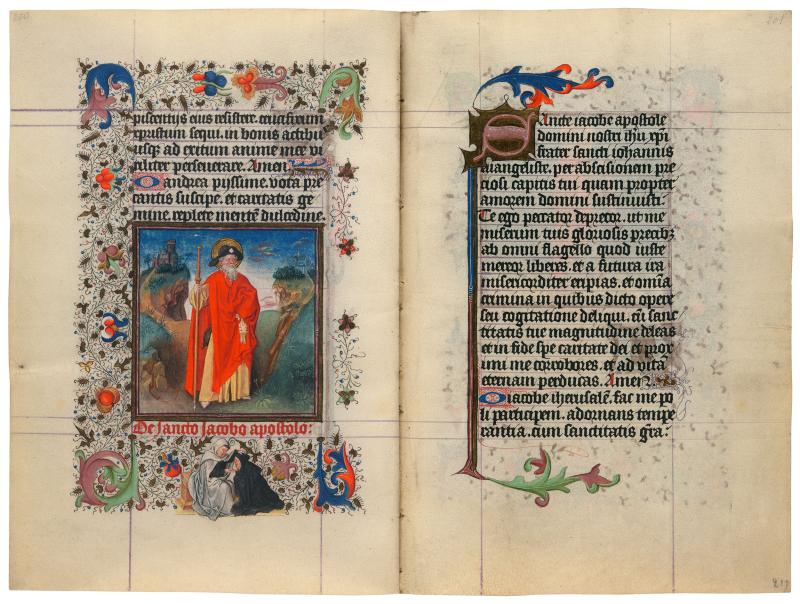 piscentius eius resistere. crucifixum
xpristum sequi. in bonis actibus
usqz ad exitum anime mee vi
riliter perseverare. Amen
O andrea pyssime. vota pre
cantis suscipe. et caritatis ge
mine. replete mentē dulcedine.
De sancto Jacobo apostolo:
SAncte iacobe apostole
domini nostri ihu xpi
frater sancti iohannis
evangeliste. per abscisionem pre
ciosi capitis tui quam propter
amorem domini sustinuisti.
Te ego peccator deprecor. ut me
miserum tuis gloriosis precibz
ab omni flagello quod iuste
mereor liberes. et a futura ira
misericorditer eripias. et omīa
crimina in quibus dicto opere
seu cogitatione deliqui. cū sanc
titatis tue magnitudine deleas
et in fide spe caritate dei et prox
imi me corrobores. et ad vitā
eternam perducas. Amen.
O iacobe iherusalē. fac me po
li participem. adornans tempe
rantia. cum sanctitatis gr̄a: